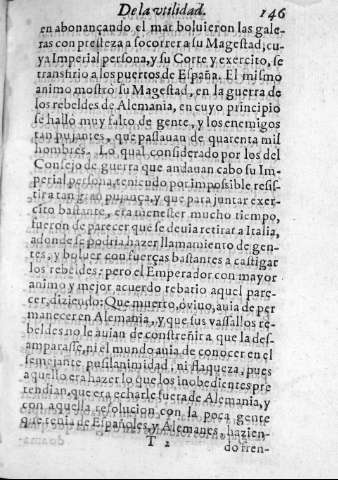 De la vtilidad. 146
en abonançando el mar boluieron las gale-
ras con presteza a socorrer a su Magestad, cu-
ya Imperial persona, y su Corte y exercito, se
transfirio a los puertos de España. El mismo
animo mostro su Magestad, en la guerra de
los rebeldes de Alemania, en cuyo principio
se hallò muy falto de gente, y los enemigos
tan pujantes, que passauan de quarenta mil
hombres. Lo qual considerado por los del
Consejo de guerra que andauan cabo su Im-
perial persona, teniendo por impossible resis-
tir a tan gran pujança, y que para juntar exer-
cito bastante, era menester mucho tiempo,
fueron de parecer que se deuia retirar a Italia,
adonde se podria hazer llamamiento de gen-
tes, y boluer con fuerças bastantes a castigar
los rebeldes: pero el Emperador con mayor
animo y mejor acuerdo rebatio aquel pare-
cer, diziendo: Que muerto, ò viuo, auia de per
manecer en Alemania, y que sus vassallos re-
beldes no le auian de constreñir a que la des-
amparasse, ni el mundo auia de conocer en el
semejante pusilanimidad, ni flaqueza, pues
aquello era hazer lo que los inobedientes pre
tendian, que era echarle fuera de Alemania, y
con aquella resolucion con la poca gente
que tenia de Españoles, y Alemanes, hazien-
T 2 do fren-